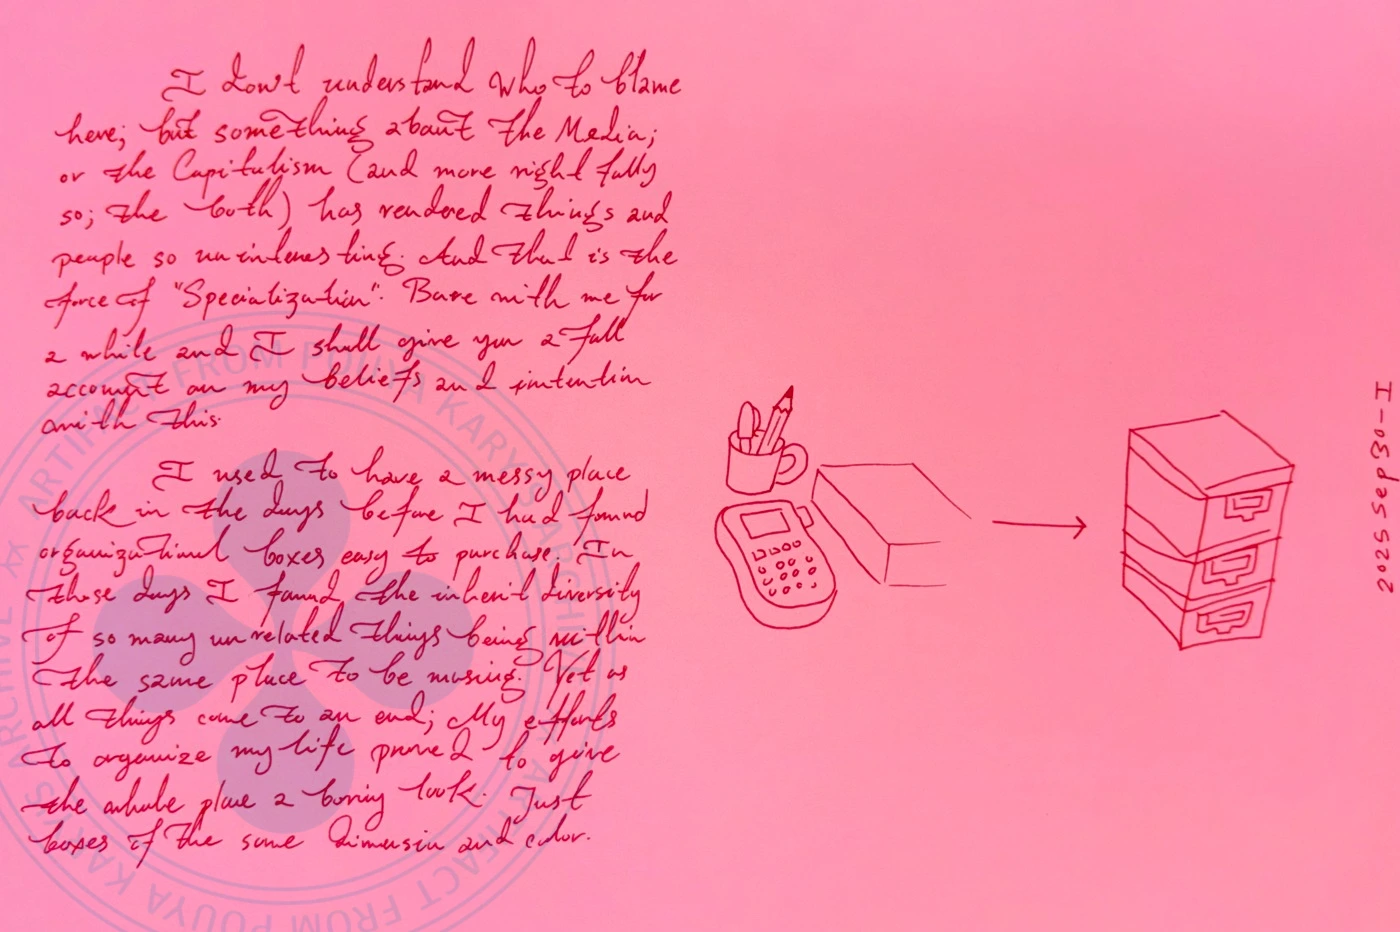 I don't understand who to blame
here; but something about the Media;
or the Capitalism (and more rightfully
so; the both) has rendered things and
people so uninteresting. And that is the
force of "Specialization". Bare with me for
a while and I shall give you a full
account on my beliefs and intention
with this.
I used to have a messy place
back in the days before I had found
organizational boxes easy to purchase. In
those days I found the inherit diversity
of so many unrelated things being within
the same place to be musing. Yet as
all things come to an end; My efforts
to organize my life proved to give
the whole place a boring look. Just
boxes of the same dimension and color.
2025 Sep 30-I
ARTIFACT FROM POUYA KARY'S ARCHIVE
ARTIFACT FROM POUYA KARY'S ARCHIVE